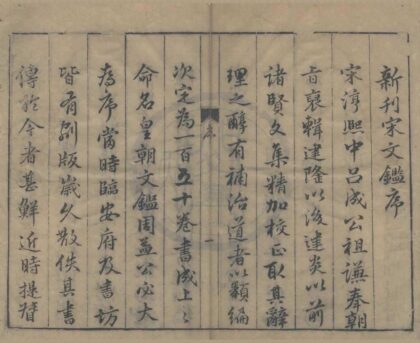 新刊宋文鑑序
宋淳熙中吕成公祖謙奉朝
旨裒輯建隆以後建炎以前
諸賢文集精加校正取其辭
理之醇有補治道者以類編
序
一
次定為一百五十卷書成上之
命名皇朝文鑑周益公必大
為序當時臨安府及書坊
皆有刻版歲久散佚其書
傳於今者甚鮮近時提督